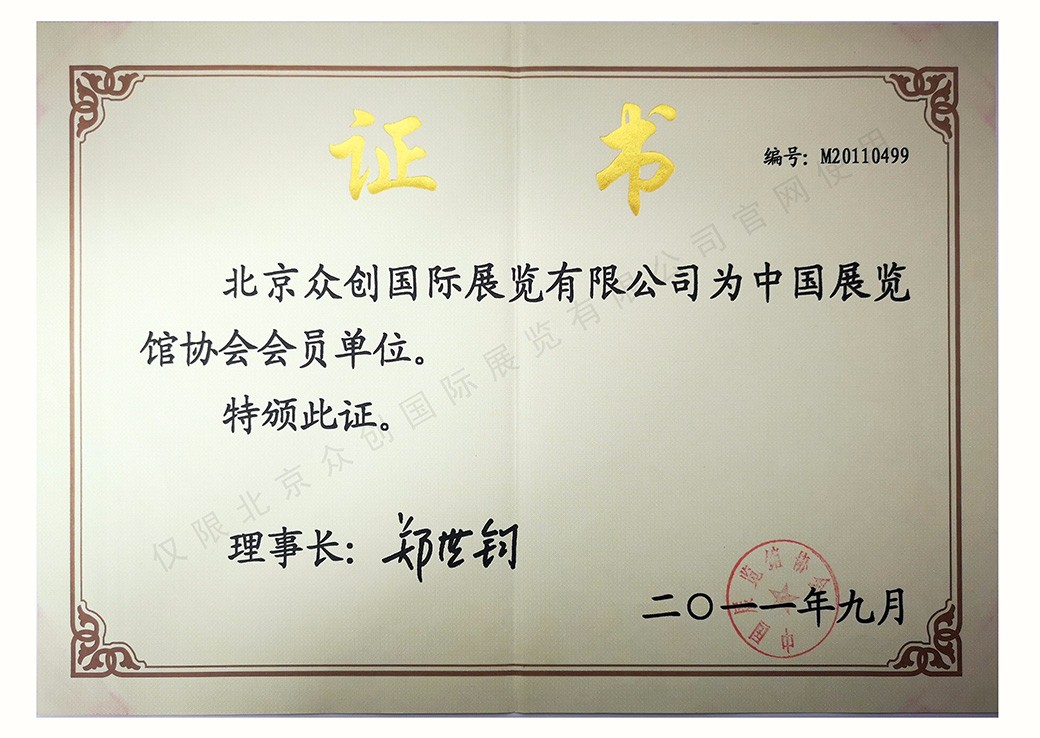 证 书
编号: M20110499
北京众创国际展览有限公司为中国展览
馆协会会员单位。
特颁此证。
理事长: 郑世钧
二〇一一年九月
中国展览馆协会
仅限北京众创国际展览有限公司官网使用